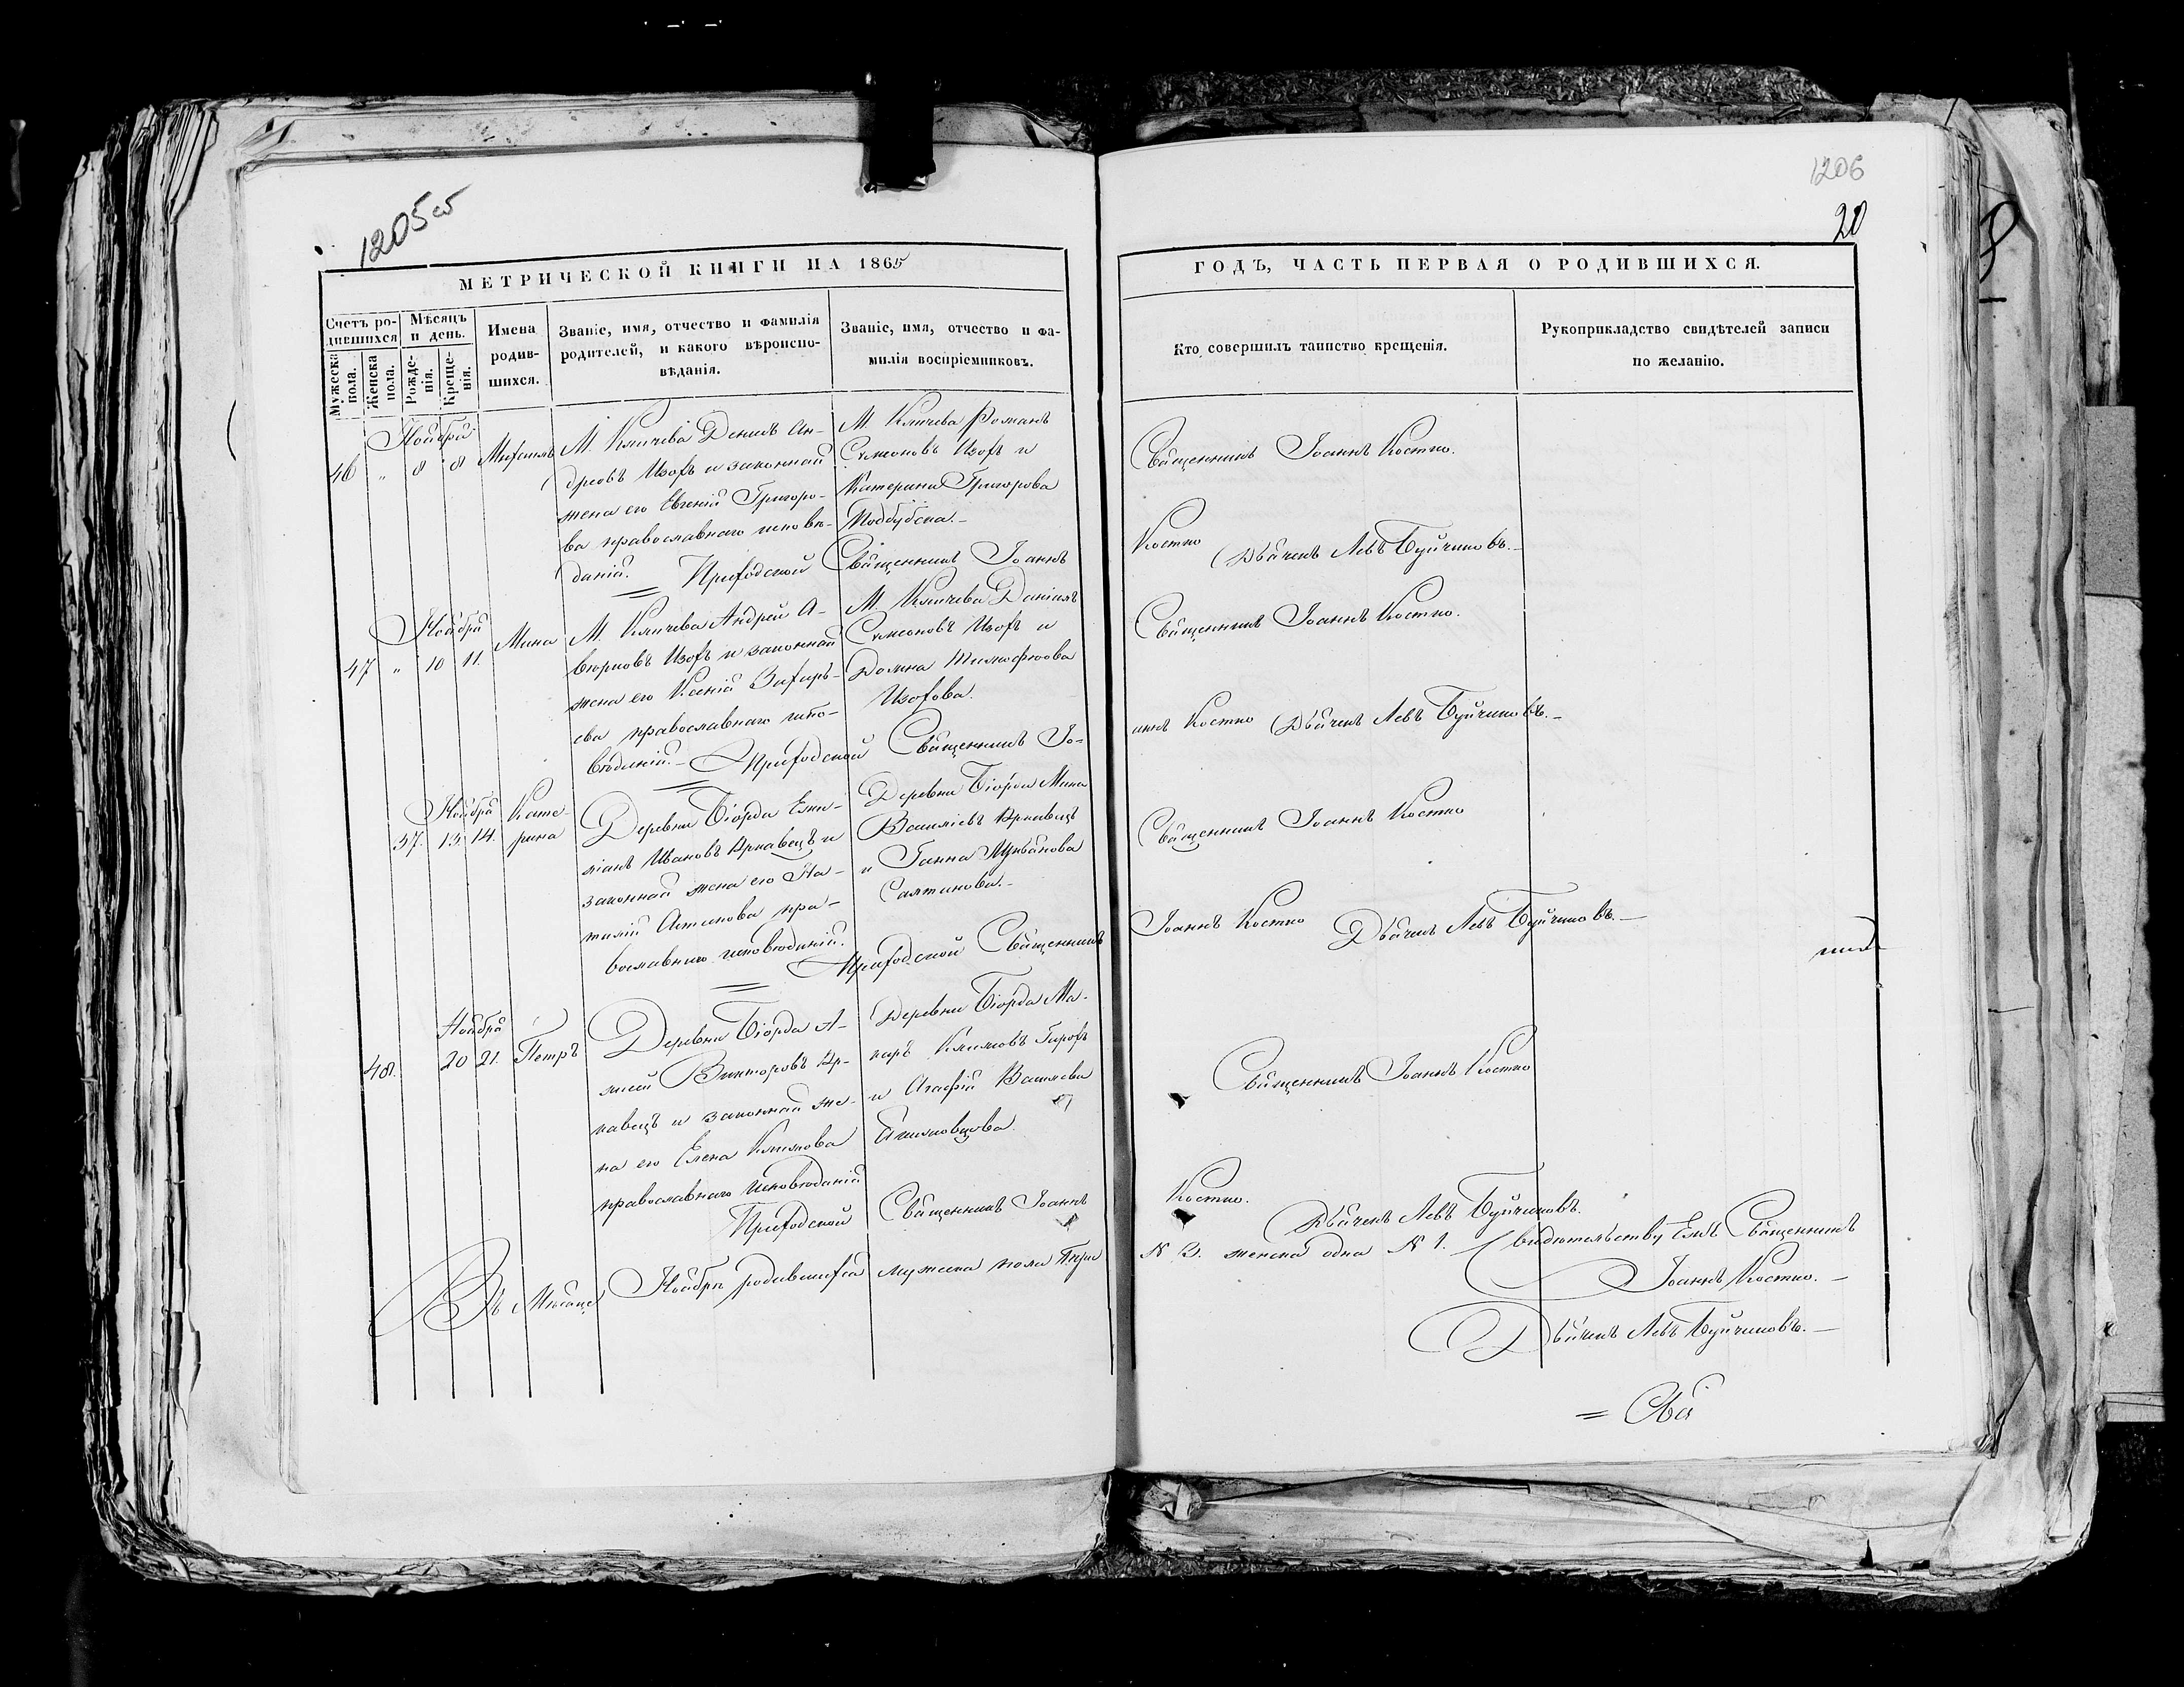 1205об
1206
20
МЕТРИЧЕСКОЙ КНИГИ НА 1865
ГОДЪ, ЧАСТЬ ПЕРВАЯ О РОДИВШИХСЯ.
Счетъ ро-
дившихся
Мужеска
пола.
Женска
пола.
Мѣсяцъ
и день.
Рожде-
нія.
Креще-
нія.
Имена
родив-
шихся.
Званіе, имя, отчество и фамилія
родителей, и какого вѣроиспо-
вѣданія.
Званіе, имя, отчество и фа-
милія воспріемниковъ.
Кто совершилъ таинство крещенія.
Рукоприкладство свидѣтелей записи
по желанію.
Ноября
46 " 8 8 Михаилъ
М. Кличева Денисъ Ан-
дреевъ Изофъ и законная
жена его Евгенія Григоро-
ва православнаго исповѣ-
данія.
М. Кличева Романъ
Симеоновъ Изофъ и
Катерина Григорова
Поддубска.
Священникъ Іоаннъ Костко.
Приходской Священникъ Іоаннъ
Костко Дьячекъ Левъ Буйчиковъ.
Ноября
47 " 10 11. Мина
М. Кличева Андрей А-
верковъ Изофъ и законная
жена его Ксенія Захарь-
ева православнаго испо-
вѣданія.
М. Кличева Даніилъ
Симеоновъ Изофъ и
Домна Тимофеева
Изофова.
Священникъ Іоаннъ Костко.
Приходской Священникъ Іо-
аннъ Костко Дьячекъ Левъ Буйчиковъ.
Ноября
37. 13. 14. Кате-
рина
Деревни Біорда Еми-
ліанъ Ивановъ Кравецъ и
законная жена его На-
талія православнаго исповѣданія.
Деревни Біорда Мина
Васильевъ Кравецъ
и Ганна
Священникъ Іоаннъ Костко
Приходской Священникъ
Іоаннъ Костко Дьячекъ Левъ Буйчиковъ.
Ноября
48. 20 21. Петръ
Деревни Біорда А-
Викторовъ Кр-
авецъ и законная же-
на его Елена Климова
православнаго исповѣданія
Деревни Біорда Ма-
каръ Климовъ
и Агафія Васильева
Священникъ Іоаннъ Костко
Приходской Священникъ Іоаннъ
Костко.
Дьячекъ Левъ Буйчиковъ.
Въ Мѣсяцѣ Ноябрѣ родившихся мужска пола три
N 3. женска одна N 1. Свидѣтельствуемъ Священникъ
Іоаннъ Костко.
Дьячекъ Левъ Буйчиковъ.